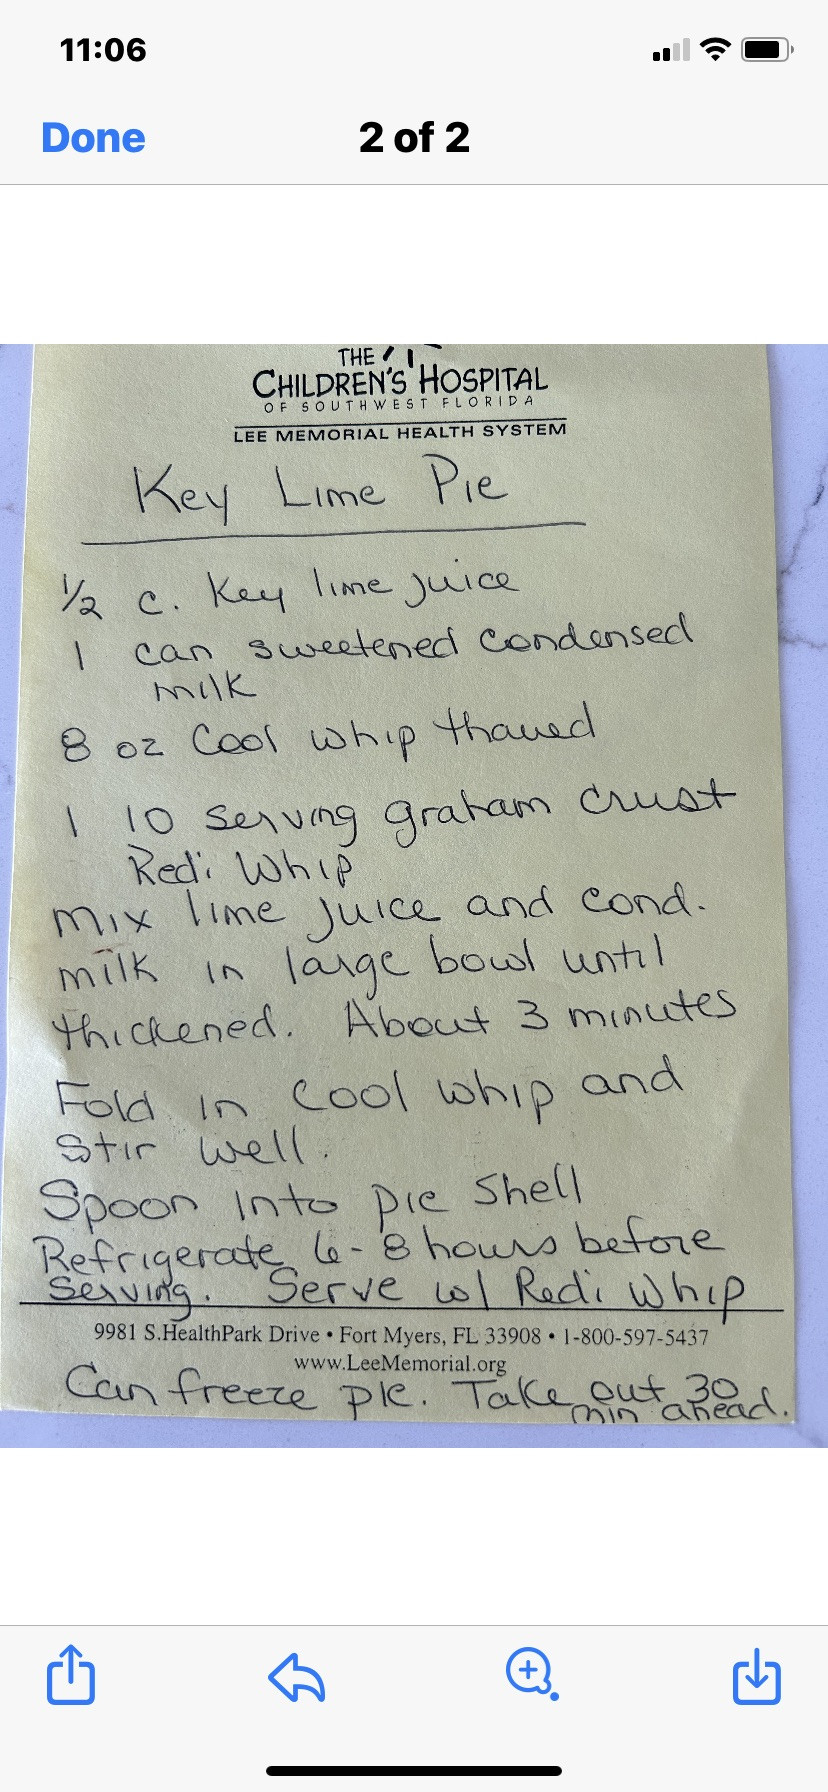 11:06
Done
2 of 2
THE
CHILDREN'S HOSPITAL
OF SOUTHWEST FLORIDA
LEE MEMORIAL HEALTH SYSTEM
Key Lime Pie
1/2 c. Key lime juice
1 can sweetened condensed
milk
8 oz Cool whip thawed
1 10 serving graham crust
Redi Whip
mix lime juice and cond.
milk in large bowl until
thickened. About 3 minutes
Fold in Cool whip and
Stir well.
Spoon into pie Shell
Refrigerate 6-8 hours before
Serving. Serve w/ Redi Whip
9981 S.HealthPark Drive • Fort Myers, FL 33908 • 1-800-597-5437
www.LeeMemorial.org
Can freeze pie. Take out 30
min ahead.